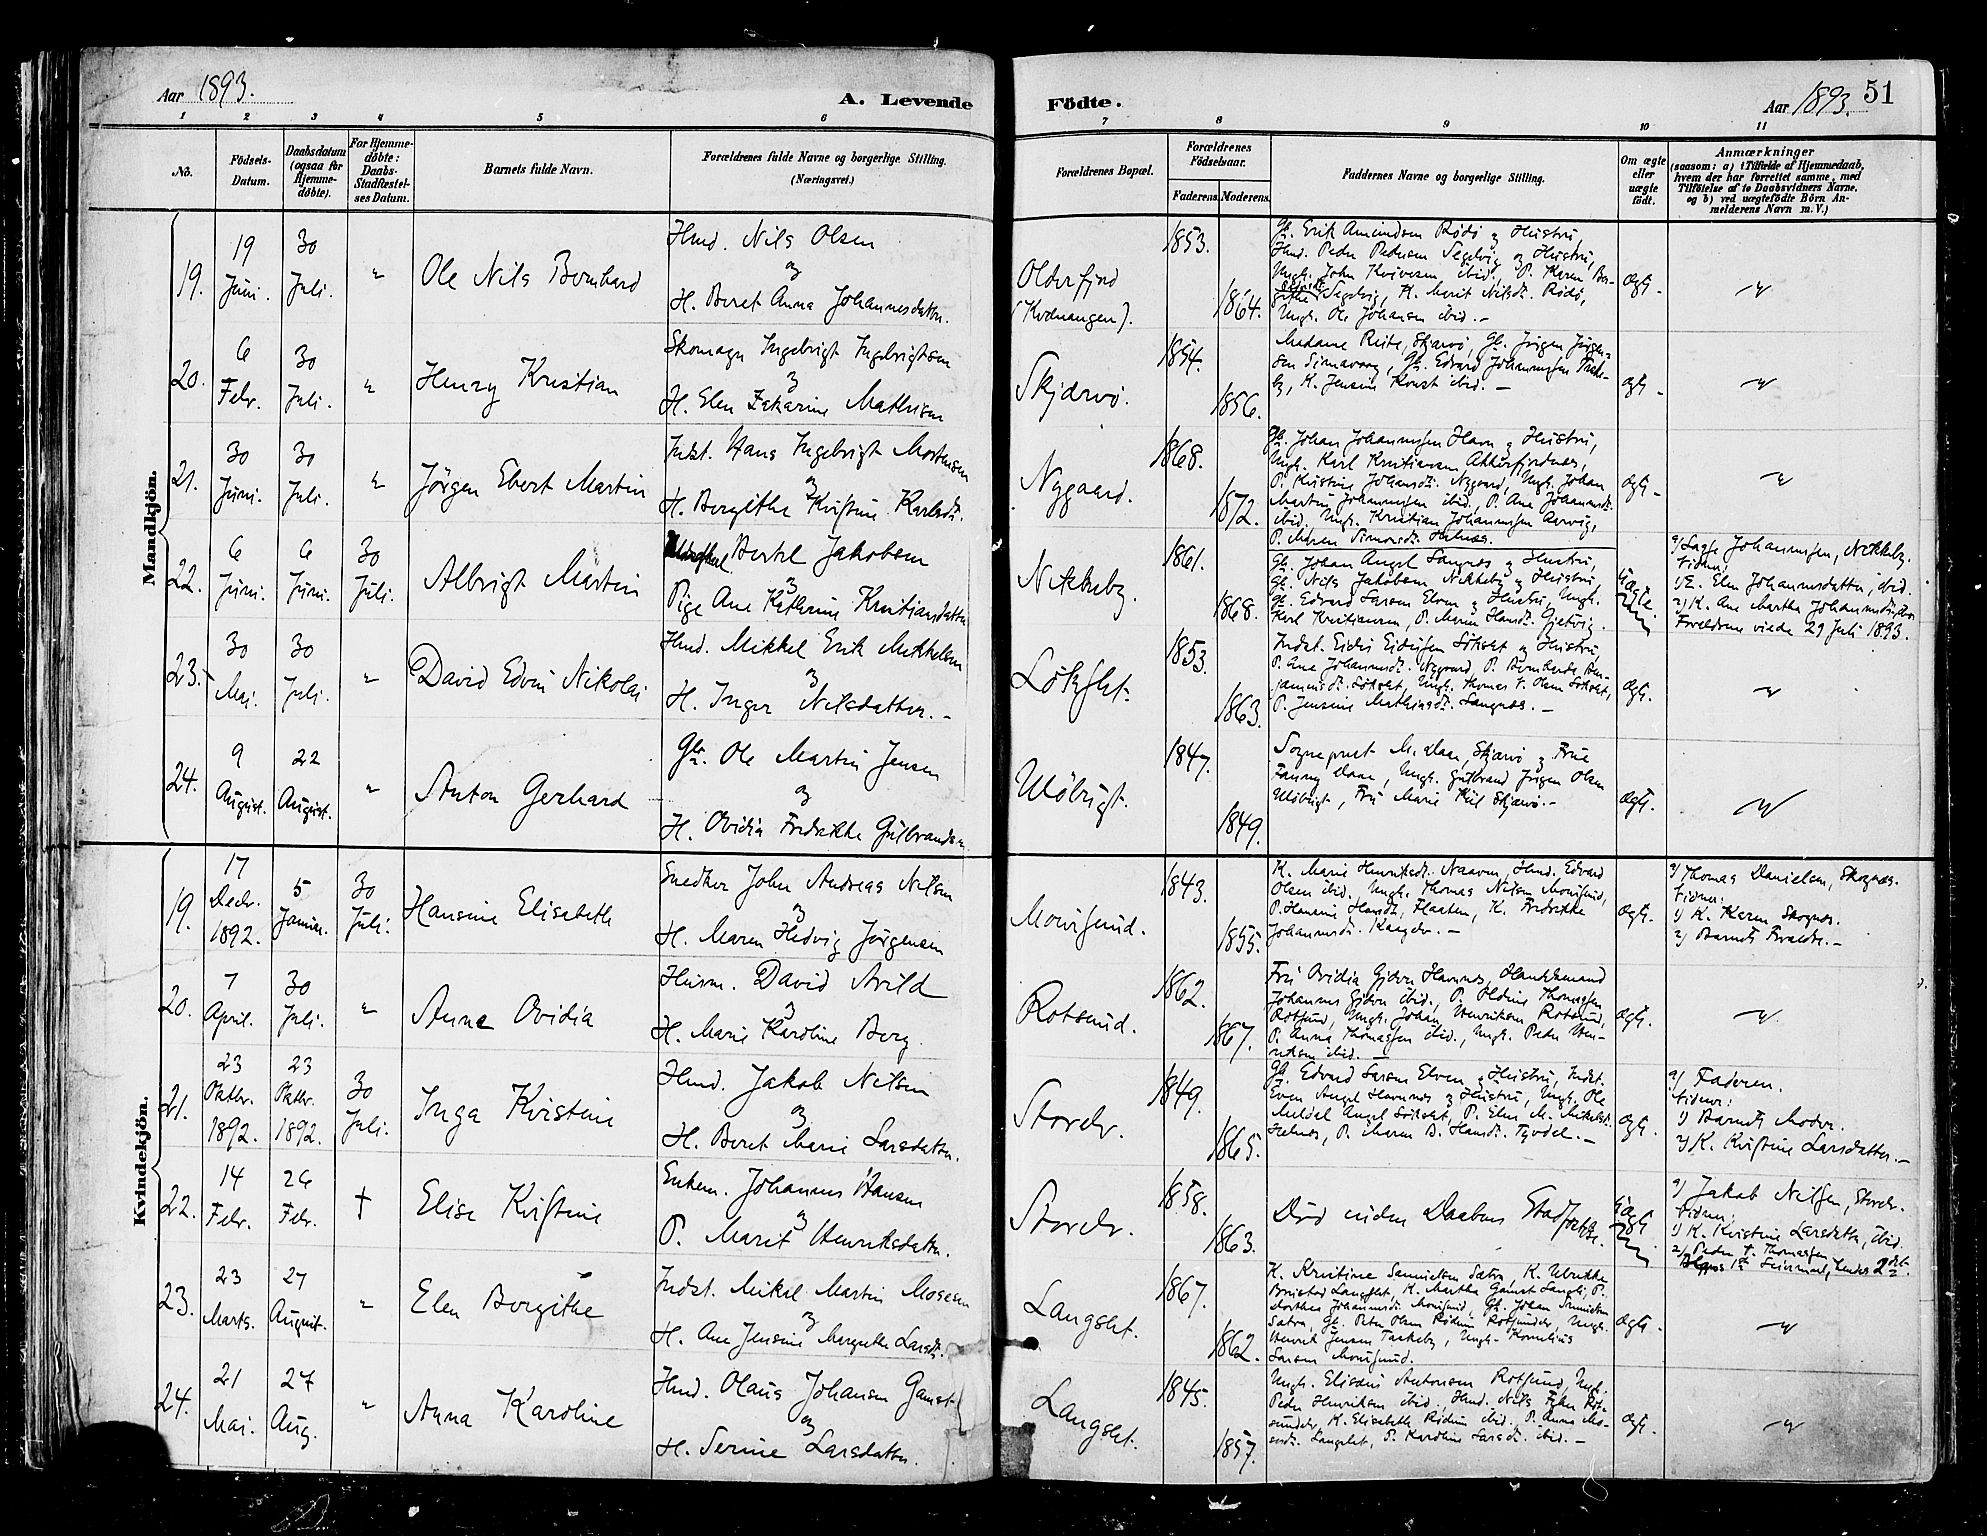 Aar 1893.
A. Levende
Födte.
Aar 1893.
51
1 2 3 4 5 6 7 8 9 10 11
No.
Födsels-
Datum.
Daabsdatum
(ogsaa for
Hjemme-
döbte).
For Hjemme-
döbte:
Daabs-
Stadfæstel-
ses Datum.
Barnets fulde Navn.
Forældrenes fulde Navne og borgerlige Stilling.
(Næringsvei.)
Forældrenes Bopæl.
Forældrenes
Födselsaar.
Faderens.
Moderens.
Faddernes Navne og borgerlige Stilling.
Om ægte
eller
uægte
født.
Anmærkninger
(saasom: a) i Tilfælde af Hjemmedaab,
hvem der har forrettet samme, med
Tilföielse af to Daabsvidners Navne,
og b) ved uægtefödte Börn An-
melderens Navn m. V.)
Mandkjön.
19.
19
Juni.
30
Juli.
"
Ole Nils Bernhard
Hmd. Nils Olsen
og
H. Beret Anna Johannesdatter.
Olderfjord
(Kvænangen).
1853.
1864.
Gb. Erik Amundsen Rödö og Hustru,
Hmd. Peder Pedersen Segelvig og Hustru,
Segelvig, K. Marit Nilsdt. Rödö,
Ungk. Ole Johansen ibid. —
ægt.
20.
6
Febr.
30
Juli.
"
Henry Kristian
Skomager Ingebrigt Ingebrigtsen
og
H. Elen Zakarine Mathisen
Skjærvö.
1854.
1856.
Madame Reite, Skjærvö, Gb. Jörgen Jörgen-
ægt.
21.
30
Juni.
30
Juli.
"
Jörgen Ebert Martin
Indst. Hans Ingebrigt Mortensen
og
H. Bergithe Kristine Karlsdt.
Nygaard.
1868.
1872.
Gb. Johan Johannesen Havn og Hustru,
Ungk. Karl Kristiansen
P. Kristine Johansdt. Nygaard, Ungk. Johan
Martin Johannesen ibid, P. Ane Johannesdt.
ibid, Ungk. Kristian Johannesen
P. Maren Simonsdt. Helnæs.
ægt.
22.
6
Juni.
6
Juni.
30
Juli.
Albrigt Martin
Bertel Jakobsen
og
Pige Ane Kathrine Kristiansdatter
Nikkeby.
1861.
1868.
Gb. Johan Angel Langnæs og Hustru,
Gb. Nils Jakobsen Nikkeby og Hustru,
Gb. Edvard Larsen Elven og Hustru, Ungk.
Karl Kristiansen, P. Maria Hansdt.
Uægte
a) Johannesen, Nikkeby.
Vidner:
1) E. Elen Johannesdatter, ibid.
2) K. Ane Martha
Forældrene viede 29 Juli 1893.
23.
30
Mai.
30
Juli.
"
David Edvin Nikolai
Hmd. Mikkel Erik Mikkelsen
og
H. Inger Nilsdatter. —
Lökslet.
1853.
1863.
P. Ane Johannesdt. Nygaard, P. Bernharda Ben-
jaminsdt. Lökslet, Ungk. Thomas T. Olsen Lökslet,
P. Jensine Mathisdt. Langnæs. —
ægt.
24.
9
August.
22
August.
"
Anton Gerhard
Gbr. Ole Martin Jensen
og
H. Ovidia Fredrikke Gulbrandsen
Uløbugt.
1847.
1849.
Sogneprest M. Daae, Skjærvö og Frue
Fanny Daae, Ungk. Gulbrand Jörgen Olsen
Uløbugt, Fru Marie Kiil Skjærvö. —
ægt.
Kvindekjön.
19.
17
Decbr.
1892.
5
Januar.
30
Juli.
Hansine Elisabeth
Snedker John Andreas Nilsen
og
H. Maren Hedvig Jörgensen
Moursund.
1843.
1855.
K. Marie Henriksdt. Hmd. Edvard
Olsen ibid, Ungk. Thomas Nilsen Moursund,
P. Hanine Hansdt, Flaaten, K. Fredrikke
Johannesdt.
ægt.
a) Thomas Danielsen, Skognæs.
Vidner:
1) K. Karen Skognæs.
2) Barnets Forældre. —
20.
7
April.
30
Juli.
"
Anna Ovidia
Husm. David Arild
og
H. Marie Karoline Berg.
Rotsund.
1862.
1867.
Fru Ovidia Gjæver Havnnes, Handelsmand
Johannes Gjæver ibid., P. Oldine Thomassen
Rotsund, Ungk. Johan Henriksen Rotsund,
P. Anna Thomassen ibid., Ungk. Peder Hen-
riksen ibid. —
ægt.
21.
23
Oktbr.
1892.
23
Oktbr.
1892.
30
Juli.
Inga Kristine
Hmd. Jakob Nilsen
og
H. Beret Marie Larsdatter.
Storelv.
1849.
1865.
Gb. Edvard Larsen Elven og Hustru, Indst.
Even Angel Havnnes og Hustru, Ungk. Ole
Meldal Angel Lökslet, P. Elen M. Mikkelsdt.
Helnæs, P. Maren B. Hansdt.
ægt.
a) Faderen.
Vidner:
1) Barnets Moder.
2) K. Kristine Larsdatter. —
22.
14
Febr.
26
Febr.
†
Elise Kristine
Enkem. Johannes Hansen
og
P. Marit Henriksdatter.
Storelv.
1858.
1863.
Död uden Daabens Stadfæstelse.
Uægt
a) Jakob Nilsen, Storelv.
Vidner:
1) K. Kristine Larsdatter, ibid.
2) Peder T. Thomassen
1ste Leiermaal, hendes 2det.
23.
23
Marts.
27
August.
"
Elen Bergithe
Indst. Mikal Martin Mosesen
og
H. Ane Jensine Margrethe Larsdt.
Langslet.
1867.
1862.
K. Kristine Samuelsen Sætra, K. Ulrikke
Langslet, K. Martha Gamst Langslet, P.
Dorthea Johannesdt. Moursund, Gb. Johan Samuelsen
Sætra, Gb. Peter Olsen Rödün Rotsundelv, Ungk.
Henrik Jensen Taskeby, Ungk. Kornelius
Larsen Moursund.
ægt.
24.
21
Mai.
27
Aug.
"
Anna Karoline
Hmd. Olaus Johansen Gamst
og
H. Serine Larsdatter.
Langslet.
1845.
1857.
Ungk. Elisæus Antonsen Rotsund, Ungk.
Peder Henriksen ibid, Hmd. Nils Rot-
sundelv, K. Elisabeth Rödün ibid., P. Anna Mo-
sesdt. Langslet, P. Karoline Larsdt. ibid. —
ægt.